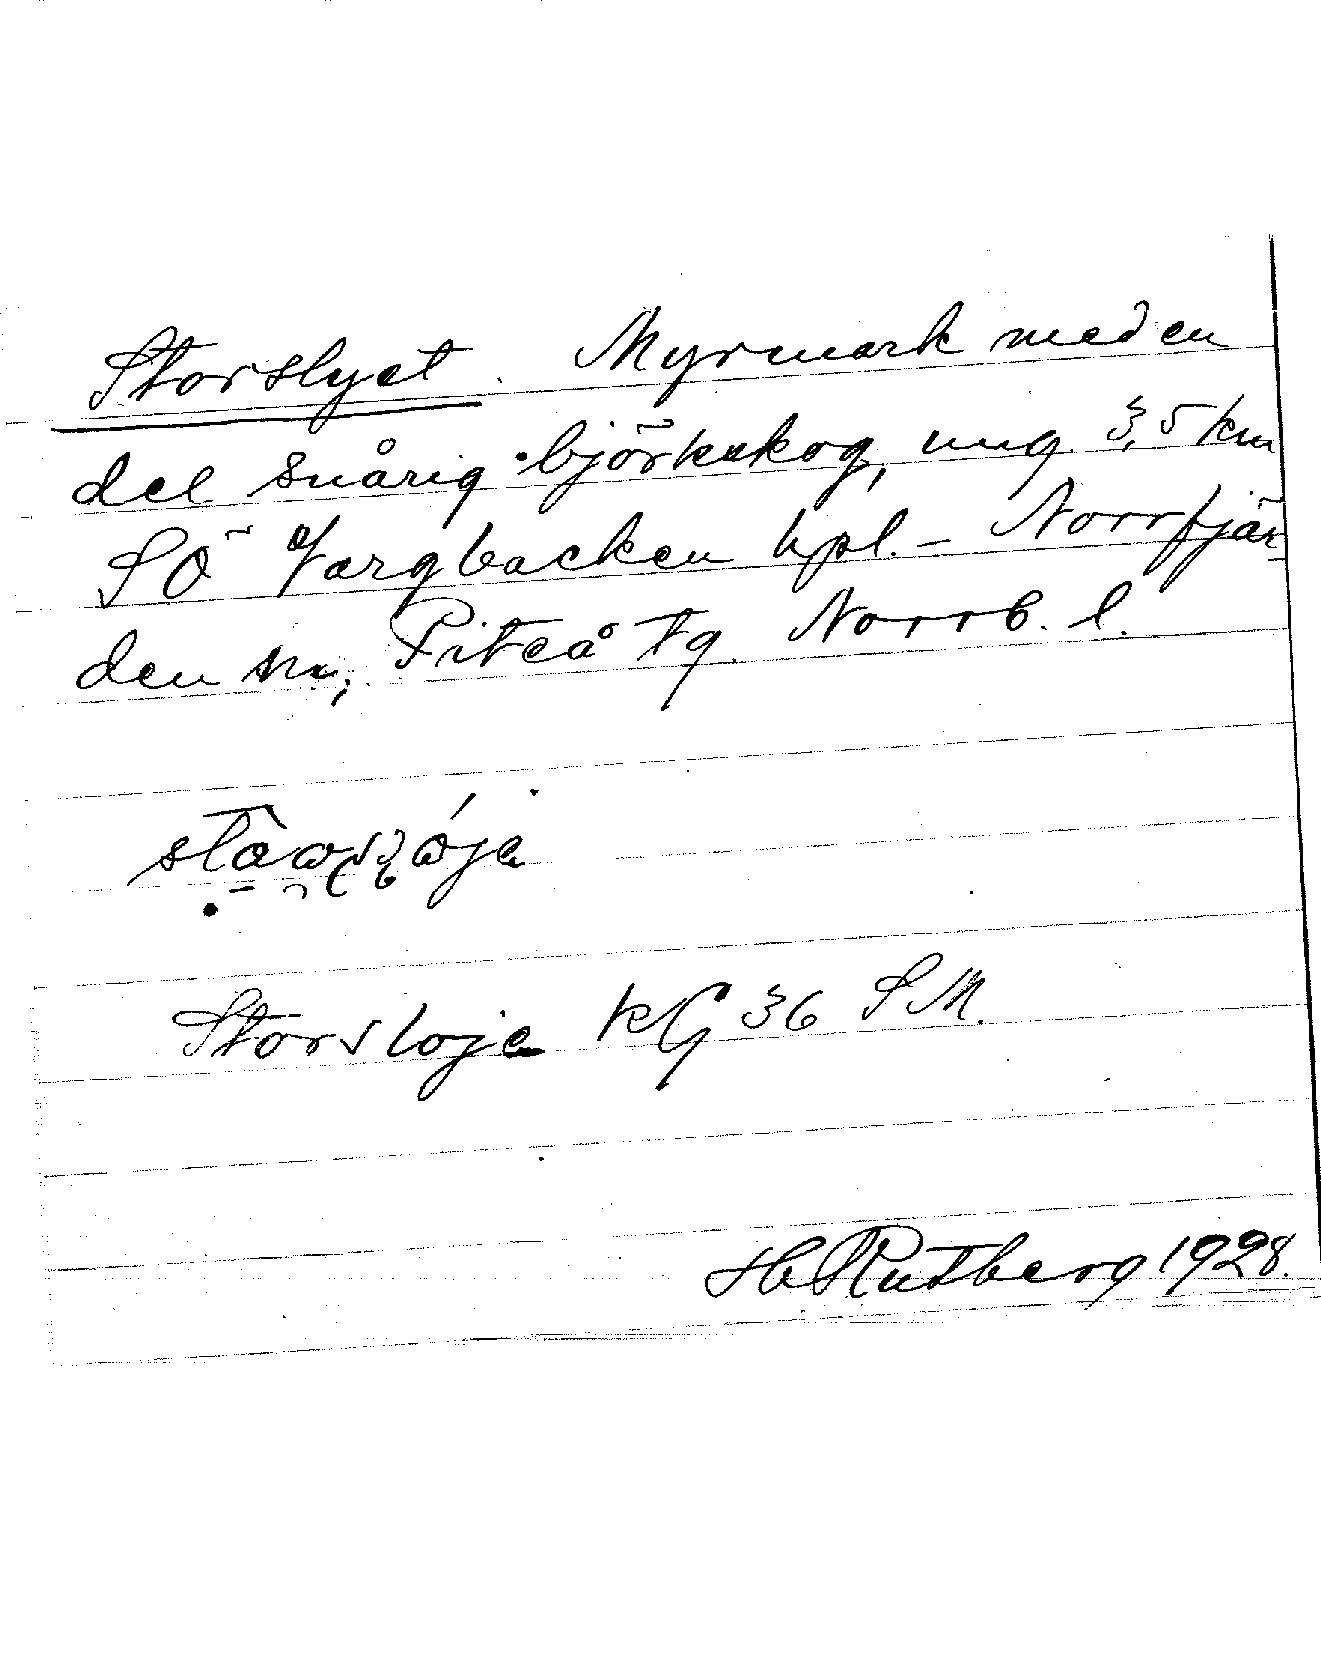 Storslyet. Myrmark med en
del snårig björkskog, ung. 3,5 km
SÖ Vargbacken hpl. – Norrfjär
den sn; Piteå tg. Norrb. l.
Storsloje KG 36 SM.
H Rutberg 1928.